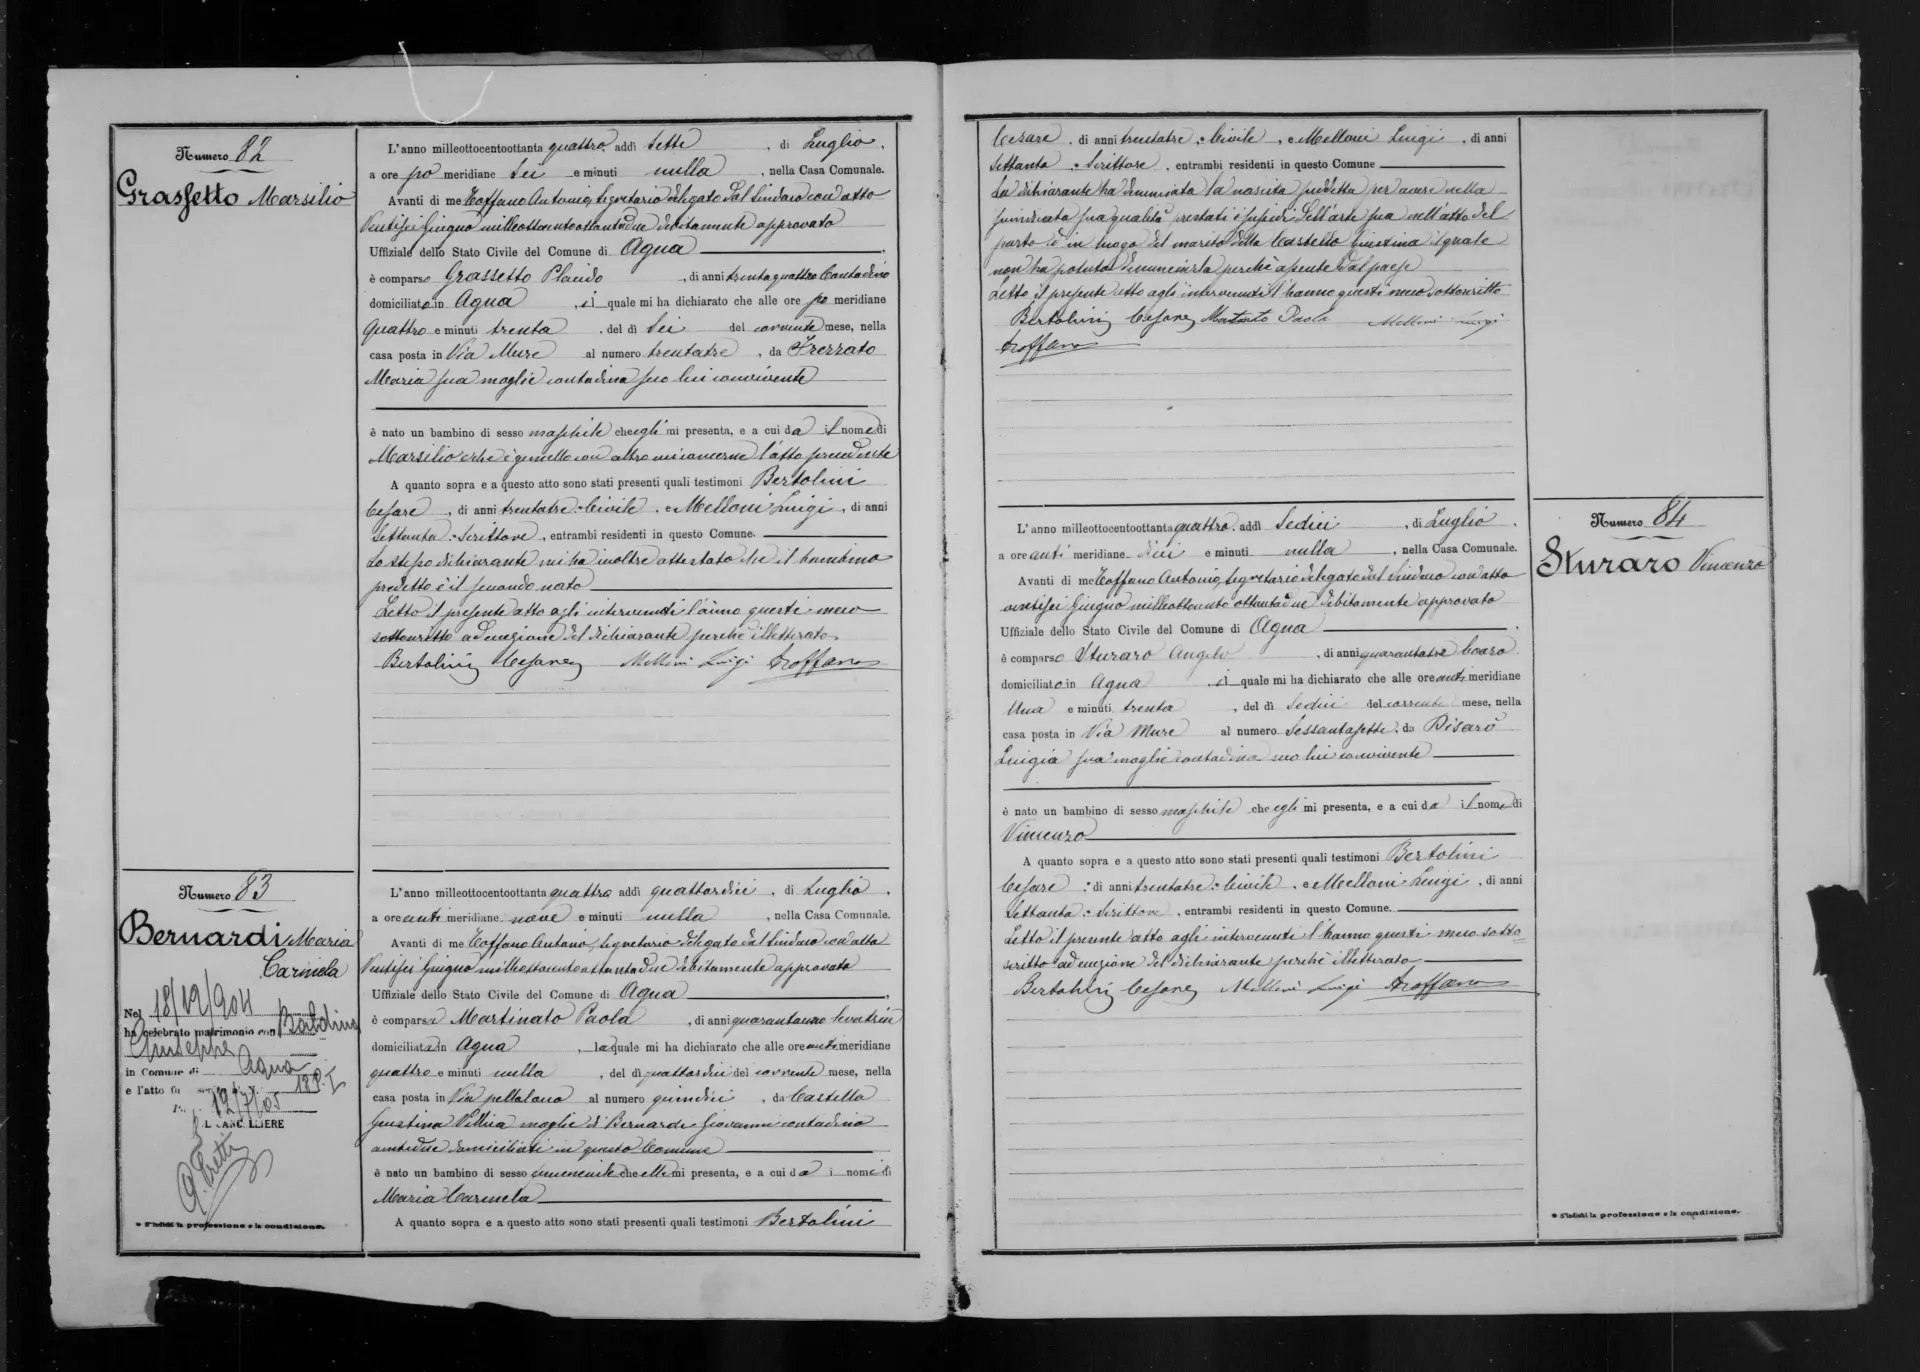 Numero 82
Grassetto Marsilio
L'anno milleottocentoottanta quattro, addì Sette, di Luglio,
a ore po meridiane Sei e minuti nulla, nella Casa Comunale.
Avanti di me Toffano Antonio, Segretario delegato dal Sindaco con atto
Ventisei Giugno milleottocentoottantadue debitamente approvato
Uffiziale dello Stato Civile del Comune di Agna
è comparso Grassetto Placido, di anni trentaquattro Contadino
domiciliato in Agna, il quale mi ha dichiarato che alle ore po meridiane
quattro e minuti trenta, del dì Sei del corrente mese, nella
casa posta in Via Mure al numero trentatre, da Frezzato
Maria sua moglie contadina seco lui convivente
è nato un bambino di sesso maschile che egli mi presenta, e a cui dà il nome di
Marsilio e che è gemello con altro cui concerne l'atto precedente
A quanto sopra e a questo atto sono stati presenti quali testimoni Bertolini
Cesare, di anni trentatre, Civile, e Melloni Luigi, di anni
Settanta, Scrittore, entrambi residenti in questo Comune.
Lo stesso dichiarante mi ha inoltre attestato che il bambino
predetto è il secondo nato
Letto il presente atto agli intervenuti l'ànno questi meco
sottoscritto ad eccezione del dichiarante perchè illetterato.
Bertolini Cesare Melloni Luigi AToffano
Numero 83
Bernardi Maria
Carmela
Nel 18/12/904
ha celebrato matrimonio con
Giuseppe
in Comune di Agna
e l'atto fu
12/7/05
IL CANCELLIERE
* S'indichi la professione e la condizione.
L'anno milleottocentoottanta quattro, addì quattordici, di Luglio,
a ore anti meridiane nove e minuti nulla, nella Casa Comunale.
Avanti di me Toffano Antonio, Segretario delegato dal Sindaco con atto
Ventisei Giugno milleottocentoottantadue debitamente approvato
Uffiziale dello Stato Civile del Comune di Agna
è comparsa Martinato Paola, di anni quarantuno levatrice
domiciliata in Agna, la quale mi ha dichiarato che alle ore anti meridiane
quattro e minuti nulla, del dì quattordici del corrente mese, nella
casa posta in Via al numero quindici, da Castello
Giustina Villica moglie di Bernardi Giovanni contadino
ambidue domiciliati in questo Comune
è nato un bambino di sesso femenile che ella mi presenta, e a cui dà i nomi di
Maria Carmela
A quanto sopra e a questo atto sono stati presenti quali testimoni Bertolini
Cesare, di anni trentatre, Civile, e Melloni Luigi, di anni
Settanta, Scrittore, entrambi residenti in questo Comune
La dichiarante ha denunciata la nascita predetta per avere nella
sunindicata sua qualità prestati i sussidi dell'arte sua nell'atto del
parto ed in luogo del marito della Castello Giustina il quale
non ha potuto denunciarla perchè assente dal paese
Letto il presente atto agli intervenuti l'hanno questi meco sottoscritto
Bertolini Cesare Martinato Paola Melloni Luigi
AToffano
Numero 84
Sturaro Vincenzo
L'anno milleottocentoottanta quattro, addì Sedici, di Luglio,
a ore anti meridiane dieci e minuti nulla, nella Casa Comunale.
Avanti di me Toffano Antonio, Segretario delegato dal Sindaco con atto
ventisei Giugno milleottocento ottantadue debitamente approvato
Uffiziale dello Stato Civile del Comune di Agna
è comparso Sturaro Angelo, di anni quarantatre boaro
domiciliato in Agna, il quale mi ha dichiarato che alle ore anti meridiane
Una e minuti trenta, del dì Sedici del corrente mese, nella
casa posta in Via Mure al numero Sessantasette, da Disarò
Luigia sua moglie contadina seco lui convivente
è nato un bambino di sesso maschile che egli mi presenta, e a cui dà il nome di
Vincenzo
A quanto sopra e a questo atto sono stati presenti quali testimoni Bertolini
Cesare, di anni trentatre, Civile, e Melloni Luigi, di anni
Settanta, Scrittore, entrambi residenti in questo Comune.
Letto il presente atto agli intervenuti l'hanno questi meco sotto-
scritto ad eccezione del dichiarante perchè illetterato
Bertolini Cesare Melloni Luigi AToffano
* S'indichi la professione e la condizione.